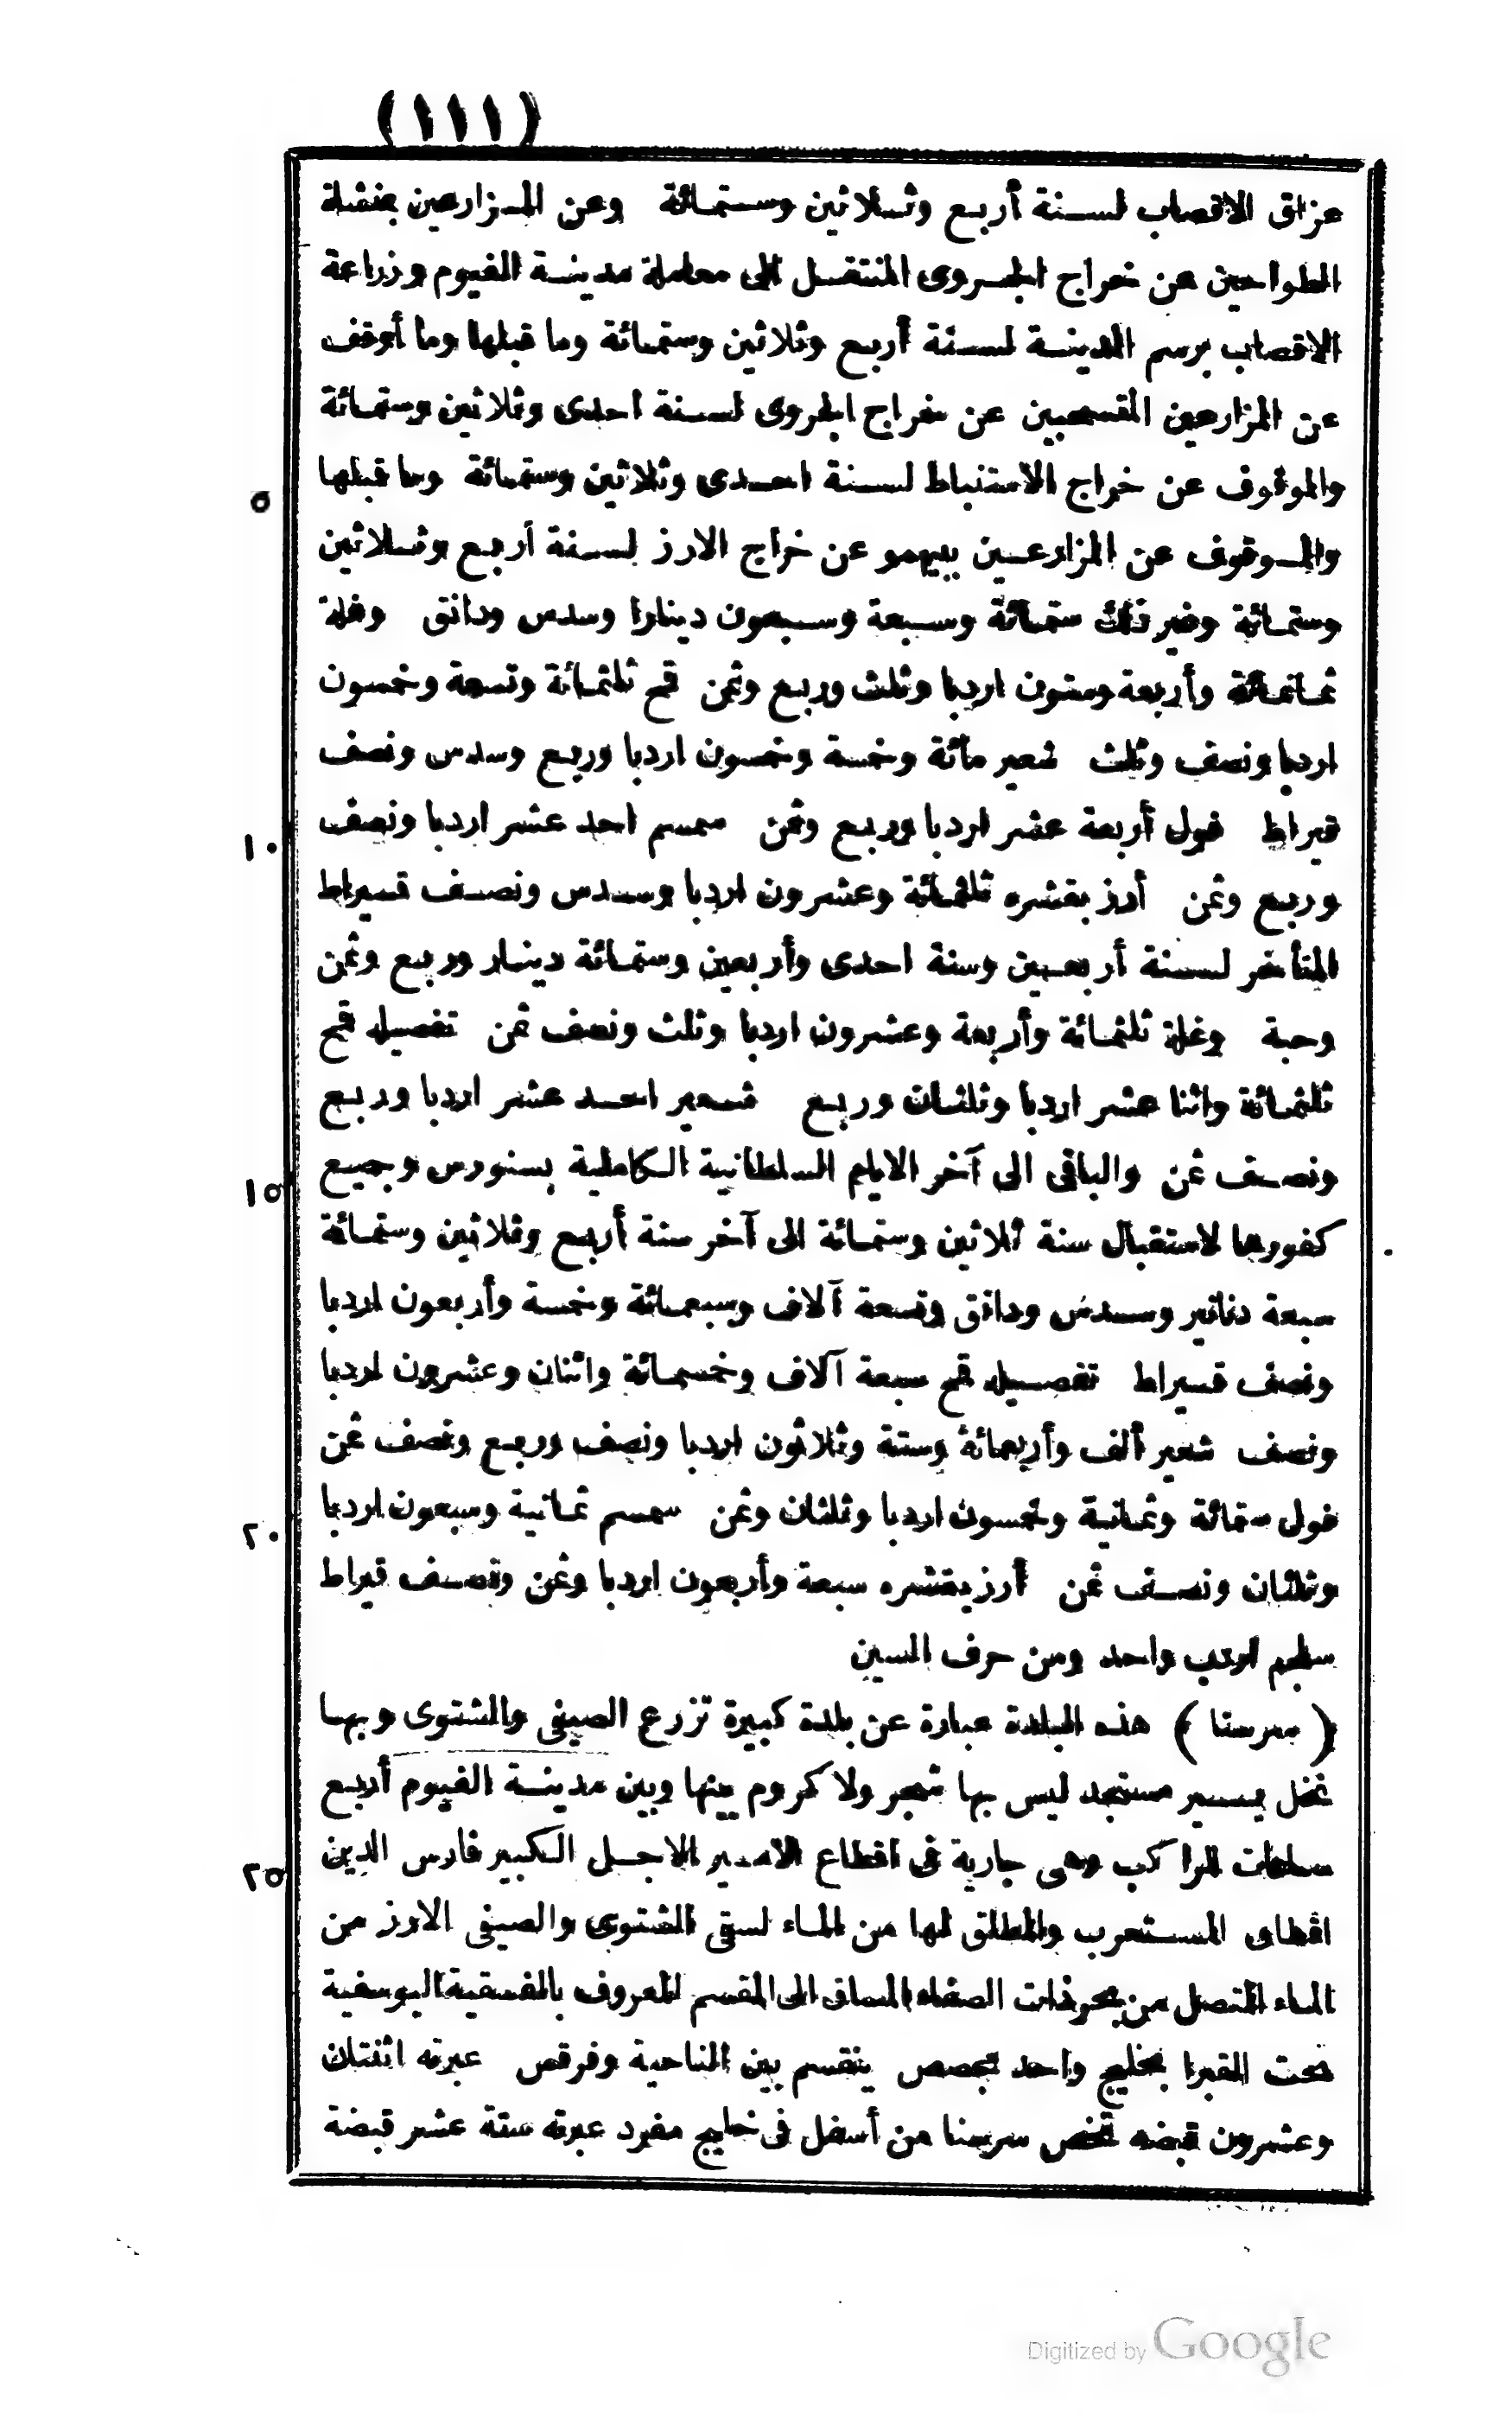 (١١١)
عزاق الاقصاب لسنة أربع وثلاثين وستمائة وعن المزارعين بنقلة
الطواحين عن خراج الجروى المنتقل الى معاملة مدينة الفيوم وزراعة
الاقصاب برسم المدينة لسنة أربع وثلاثين وستمائة وما قبلها وما أوقف
عن المزارعين القسميين عن خراج الجروى لسنة احدى وثلاثين وستمائة
والموقوف عن خراج الاستنباط لسنة احدى وثلاثين وستمائة وما قبلها
٥
والموقوف عن المزارعين ببيهمو عن خراج الارز لسنة أربع وثلاثين
وستمائة وغير ذلك ستمائة وسبعة وسبعون دينارا وسدس ودانق وغلة
ثمانمائة وأربعة وستون اردبا وثلث وربع وثمن قمح ثلثمائة وتسعة وخمسون
اردبا ونصف وثلث شعير مائة وخمسة وخمسون اردبا وربع وسدس ونصف
قيراط فول أربعة عشر اردبا وربع وثمن سمسم احد عشر اردبا ونصف
١٠
وربع وثمن أرز بقشره ثلثمائة وعشرون اردبا وسدس ونصف قيراط
المتأخر لسنة أربعين وسنة احدى وأربعين وستمائة دينار وربع وثمن
وحبة وغلة ثلثمائة وأربعة وعشرون اردبا وثلث ونصف ثمن تفصيل قمح
ثلثمائة واثنا عشر اردبا وثلثان وربع شعير احد عشر اردبا وربع
ونصف ثمن والباقى الى آخر الايام السلطانية الكاملية بسنورس وجميع
١٥
كفورها لاستقبال سنة ثلاثين وستمائة الى آخر سنة أربع وثلاثين وستمائة
سبعة دنانير وسدس ودانق وتسعة آلاف وسبعمائة وخمسة وأربعون اردبا
ونصف قيراط تفصيل قمح سبعة آلاف وخمسمائة واثنان وعشرون اردبا
ونصف شعير ألف وأربعمائة وستة وثلاثون اردبا ونصف وربع ونصف ثمن
فول ستمائة وثمانية وخمسون اردبا وثلثان وثمن سمسم ثمانية وسبعون اردبا
٢٠
وثلثان ونصف ثمن أرز بقشره سبعة وأربعون اردبا وثمن ونصف قيراط
سلجم اردب واحد ومن حرف السين
(سرسنا) هذه البلدة عبارة عن بلدة كبيرة تزرع الصيفى والشتوى وبها
نخل يسير مستجد ليس بها شجر ولا كروم بينها وبين مدينة الفيوم أربع
ساعات للراكب وهى جارية فى اقطاع الامير الاجل الكبير فارس الدين
٢٥
اقطاى المستعرب والمطلق لها من الماء لسقى الشتوى والصيفى الارز من
الماء المتصل من الصفاء المساق الى المقسم المعروف بالفسقية اليوسفية
تحت القبرا بخليج واحد بحصص ينقسم بين الناحية وفرقص عبرته اثنتان
وعشرون قبضه تخص سرسنا من أسفل فى خليج مفرد عبرته ستة عشر قبضة
Digitized by Google